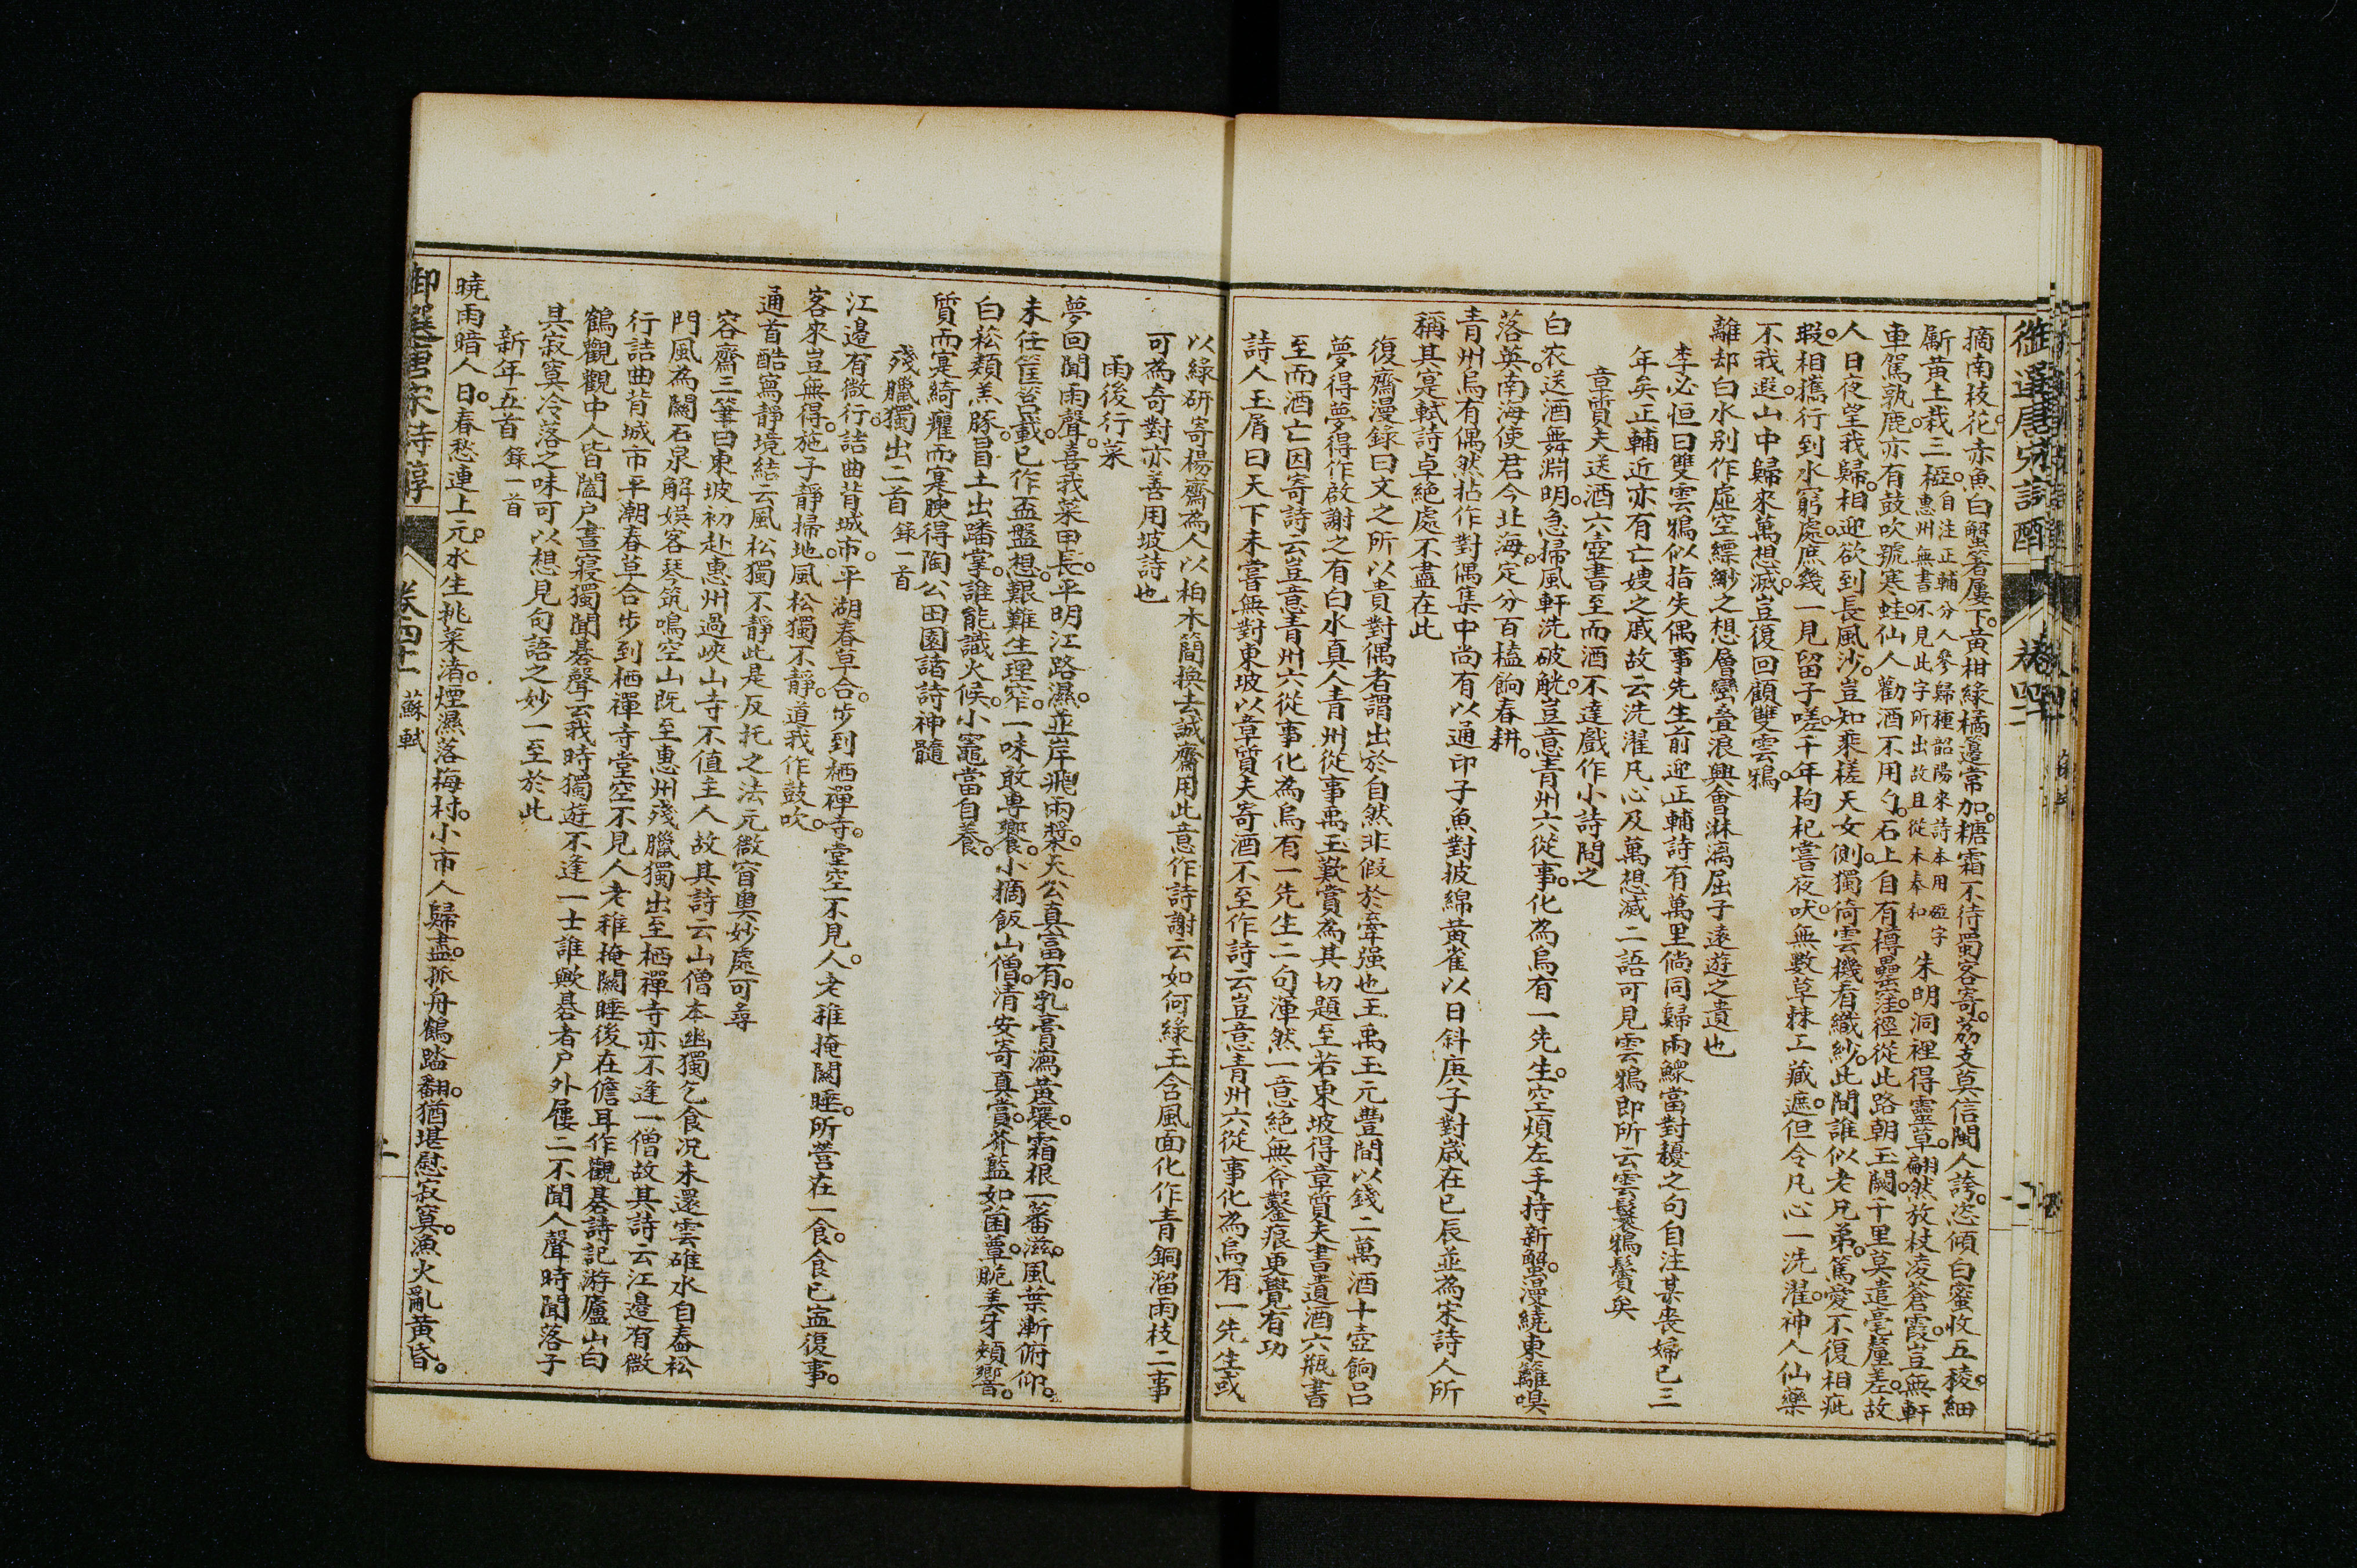 摘南枝花。赤魚白蟹箸屢下。黄柑緑橘籩常加。糖霜不待蜀客寄。荔支莫信閩人誇。恣傾白蜜收五稜。細
斸黄土栽三椏。自注正輔分人參歸種韶陽來詩本用啞字惠州無書不見此字所出故且從木奉和 朱明洞裡得靈草。翩然放杖凌蒼霞。豈無軒
車駕熟鹿。亦有鼓吹號寒蛙。仙人勸酒不用勺。石上自有樽罍窪。徑從此路朝玉闕。千里莫遣毫釐差。故
人日夜望我歸。相迎欲到長風沙。豈知乘槎天女側。獨倚雲機看織紗。此間誰似老兄弟。篤愛不復相疵
瑕。相攜行到水窮處。庶幾一見留子嗟。千年枸杞嘗夜吠。無數草棘工藏遮。但令凡心一洗濯。神人仙藥
不我遐。山中歸來萬想滅。豈復回顧雙雲鴉。
離却白水别作虛空縹緲之想層巒疊浪興會淋漓屈子遠遊之遺也
李必恒曰雙雲鴉似指失偶事先生前迎正輔詩有萬里倘同歸兩鰥當對耰之句自注某喪婦已三
年矣正輔近亦有亡嫂之戚故云洗濯凡心及萬想滅二語可見雲鴉即所云雲鬟鴉鬢矣
章質夫送酒六壺書至而酒不達戲作小詩問之
白衣送酒舞淵明。急掃風軒洗破觥。豈意青州六從事。化為烏有一先生。空煩左手持新蟹。漫繞東籬嗅
落英。南海使君今北海。定分百榼餉春耕。
青州烏有偶然拈作對偶集中尚有以通印子魚對披綿黄雀以日斜庚子對歲在已辰並為宋詩人所
稱其寔軾詩卓絶處不盡在此
復齋漫錄曰文之所以貴對偶者謂出於自然非假於牽强也王禹玉元豐間以錢二萬酒十壺餉呂
夢得夢得作啟謝之有白水真人青州從事禹玉歎賞為其切題至若東坡得章質夫書遺酒六瓶書
至而酒亡因寄詩云豈意青州六從事化為烏有一先生二句渾然一意絶無斧鑿痕更覺有功
詩人玉屑曰天下未嘗無對東坡以章質夫寄酒不至作詩云豈意青州六從事化為烏有一先生或
以緑研寄楊齋為人以柏木簡換去誠齋用此意作詩謝云如何緑玉含風面化作青銅溜雨枝二事
可為奇對亦善用坡詩也
雨後行菜
夢回聞雨聲。喜我菜甲長。平明江路濕。並岸飛兩槳。天公真富有。乳膏瀉黄壤。霜根一蕃滋。風葉漸俯仰。
未任筐筥載。已作盃盤想。艱難生理窄。一味敢專饗。小摘飯山僧。清安寄真賞。芥藍如菌蕈。脆美牙頰響。
白菘類羔豚。冒土出蹯掌。誰能識火候。小竈當自養。
質而寔綺癯而寔腴得陶公田園諸詩神髓
殘臘獨出二首 錄一首
江邊有微行。詰曲背城市。平湖春草合。步到栖禪寺。堂空不見人。老稚掩關睡。所營在一食。食已寧復事。
客來豈無得。施子靜掃地。風松獨不靜。道我作鼓吹。
通首酷寫靜境結云風松獨不靜此是反托之法元微窅奧妙處可尋
容齋三筆曰東坡初赴惠州過峽山寺不值主人故其詩云山僧本幽獨乞食况未還雲碓水自舂松
門風為關石泉解娛客琴筑鳴空山既至惠州殘臘獨出至栖禪寺亦不逢一僧故其詩云江邊有微
行詰曲背城市平潮春草合步到栖禪寺堂空不見人老稚掩關睡後在儋耳作觀碁詩記游廬山白
鶴觀觀中人皆闔户晝寢獨聞碁聲云我時獨遊不逢一士誰歟碁者户外屨二不聞人聲時聞落子
其寂寞冷落之味可以想見句語之妙一至於此
新年五首 錄一首
曉雨暗人日。春愁連上元。水生挑菜渚。煙濕落梅村。小市人歸盡。孤舟鶴踏翻。猶堪慰寂寞。漁火亂黄昏。
御選唐宋詩醇 卷四十一 蘇軾 二